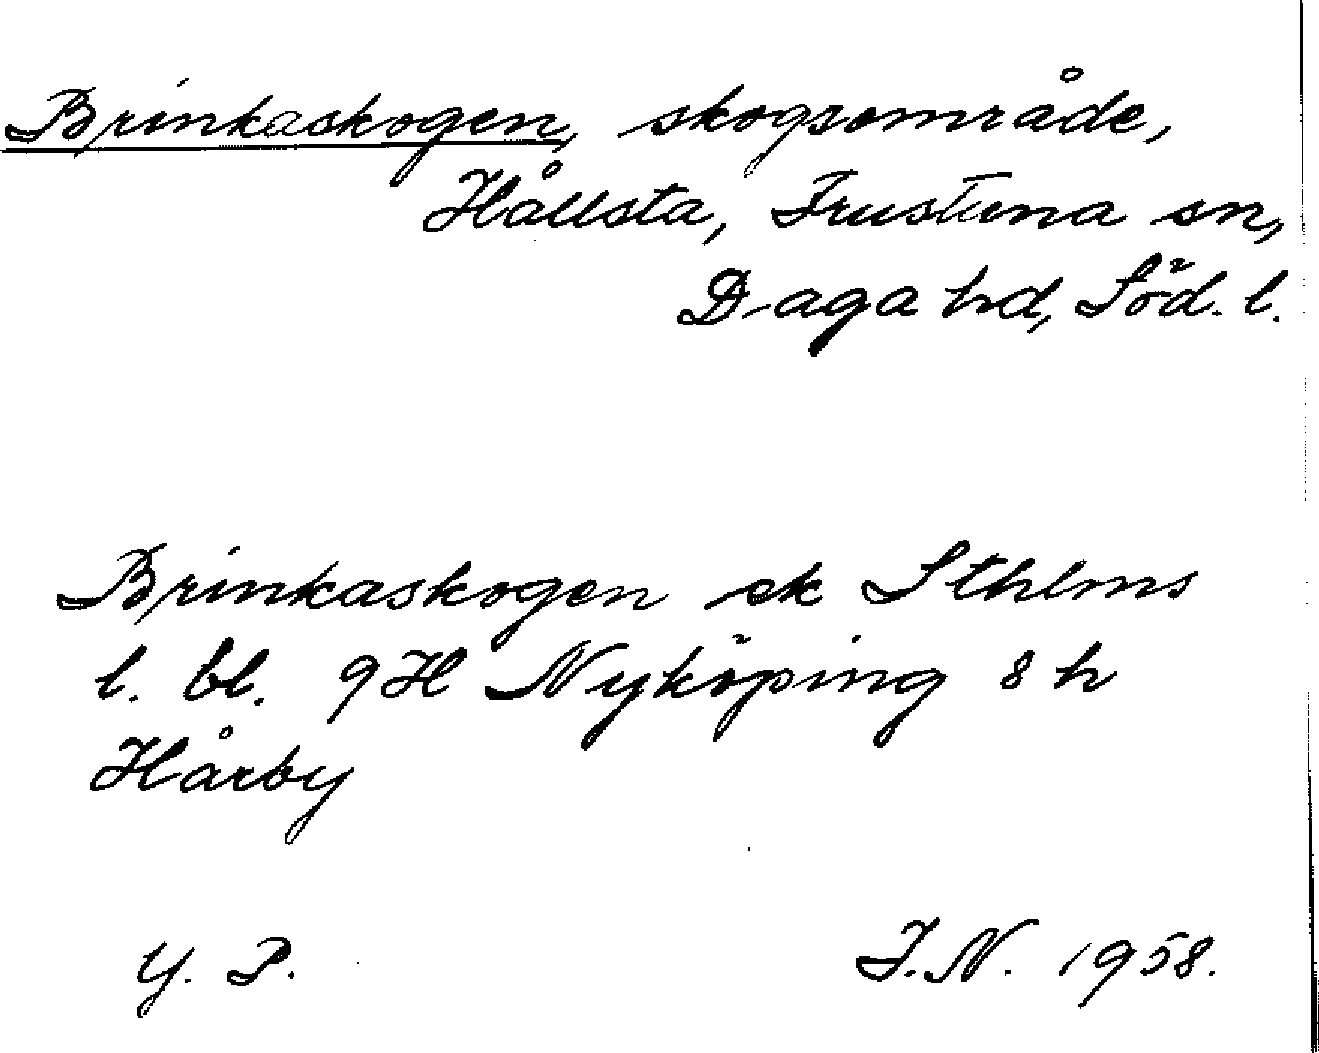 Brinkaskogen, skogsområde,
Hållsta, Frustuna sn,
Daga hd, Söd. l.
Brinkaskogen ek Sthlms
l. bl. 9H Nyköping 8 h
Hårby
Y. P.
I.N. 1958.